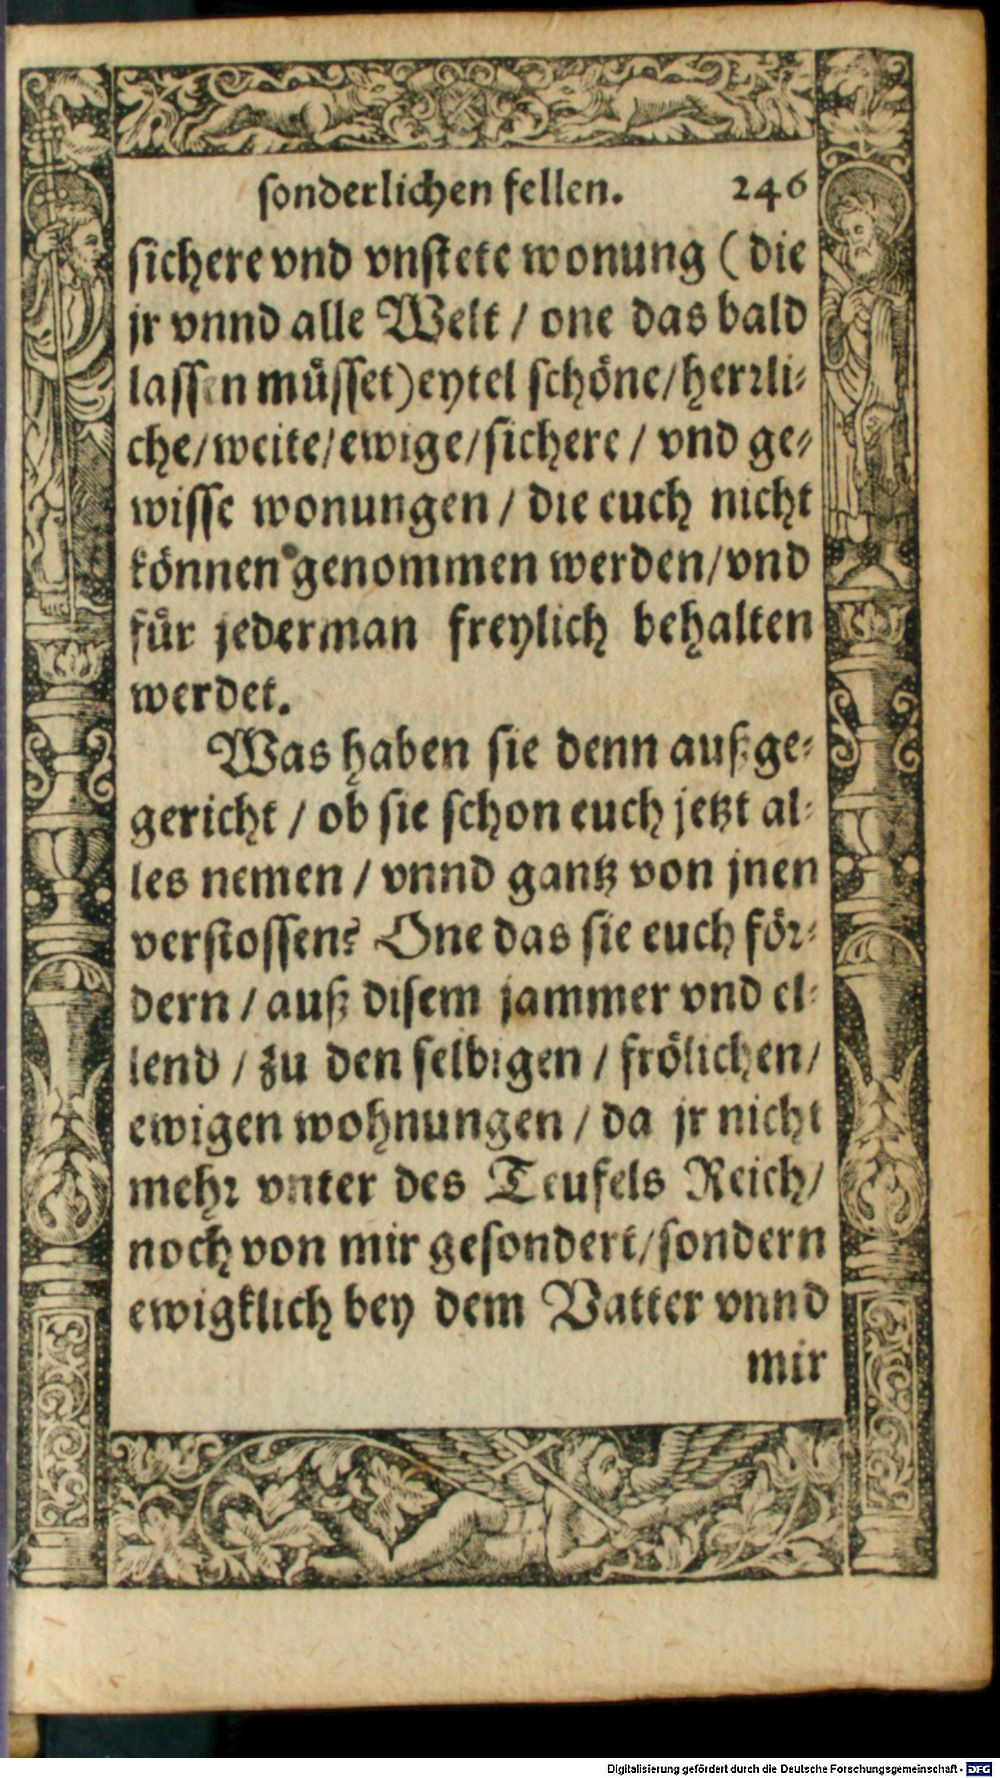 sonderlichen fellen. 246
sichere vnd vnstete wonung (die
jr vnnd alle Welt / one das bald
lassen müsset) eytel schöne / herrli⸗
che / weite / ewige / sichere / vnd ge⸗
wisse wonungen / die euch nicht
können genommen werden / vnd
für jederman freylich behalten
werdet.
Was haben sie denn außge⸗
gericht / ob sie schon euch jetzt al⸗
les nemen / vnnd gantz von jnen
verstossen? One das sie euch för⸗
dern / auß disem jammer vnd el⸗
lend / zu den selbigen / frölichen /
ewigen wohnungen / da jr nicht
mehr vnter des Teufels Reich /
noch von mir gesondert / sondern
ewigklich bey dem Vatter vnnd
mir
Digitalisierung gefördert durch die Deutsche Forschungsgemeinschaft - DFG